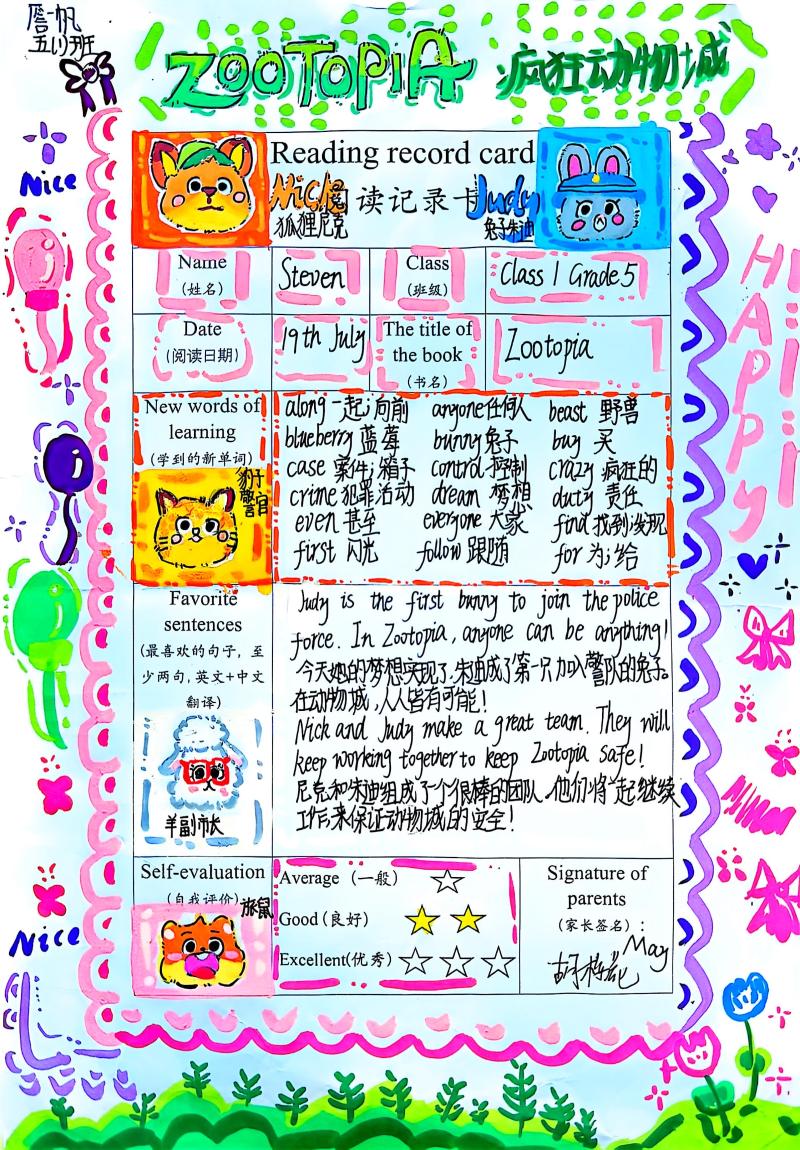 詹一帆
五(1)班
ZOOTOPIA 疯狂动物城
Reading record card
Nick Judy
阅读记录卡
狐狸尼克 兔子朱迪
Nice
Name
(姓名)
Steven
Class
(班级)
Class 1 Grade 5
Date
(阅读日期)
19th July
The title of
the book
(书名)
Zootopia
New words of
learning
(学到的新单词)
豹子
警官
along 一起;向前 anyone 任何人 beast 野兽
blueberry 蓝莓 bunny 兔子 buy 买
case 案件;箱子 control 控制 crazy 疯狂的
crime 犯罪活动 dream 梦想 duty 责任
even 甚至 everyone 大家 find 找到;发现
first 闪光 follow 跟随 for 为;给
Favorite
sentences
(最喜欢的句子，至
少两句，英文+中文
翻译)
羊副市长
Judy is the first bunny to join the police
force. In Zootopia, anyone can be anything!
今天她的梦想实现了,朱迪成了第一只加入警队的兔子。
在动物城,人人皆有可能!
Nick and Judy make a great team. They will
keep working together to keep Zootopia safe!
尼克和朱迪组成了个很棒的团队,他们将一起继续
工作,来保证动物城的安全!
Self-evaluation
(自我评价)
旅鼠
Average (一般)
Good (良好)
Excellent(优秀)
Signature of
parents
(家长签名):
May
Nice
HAPPY